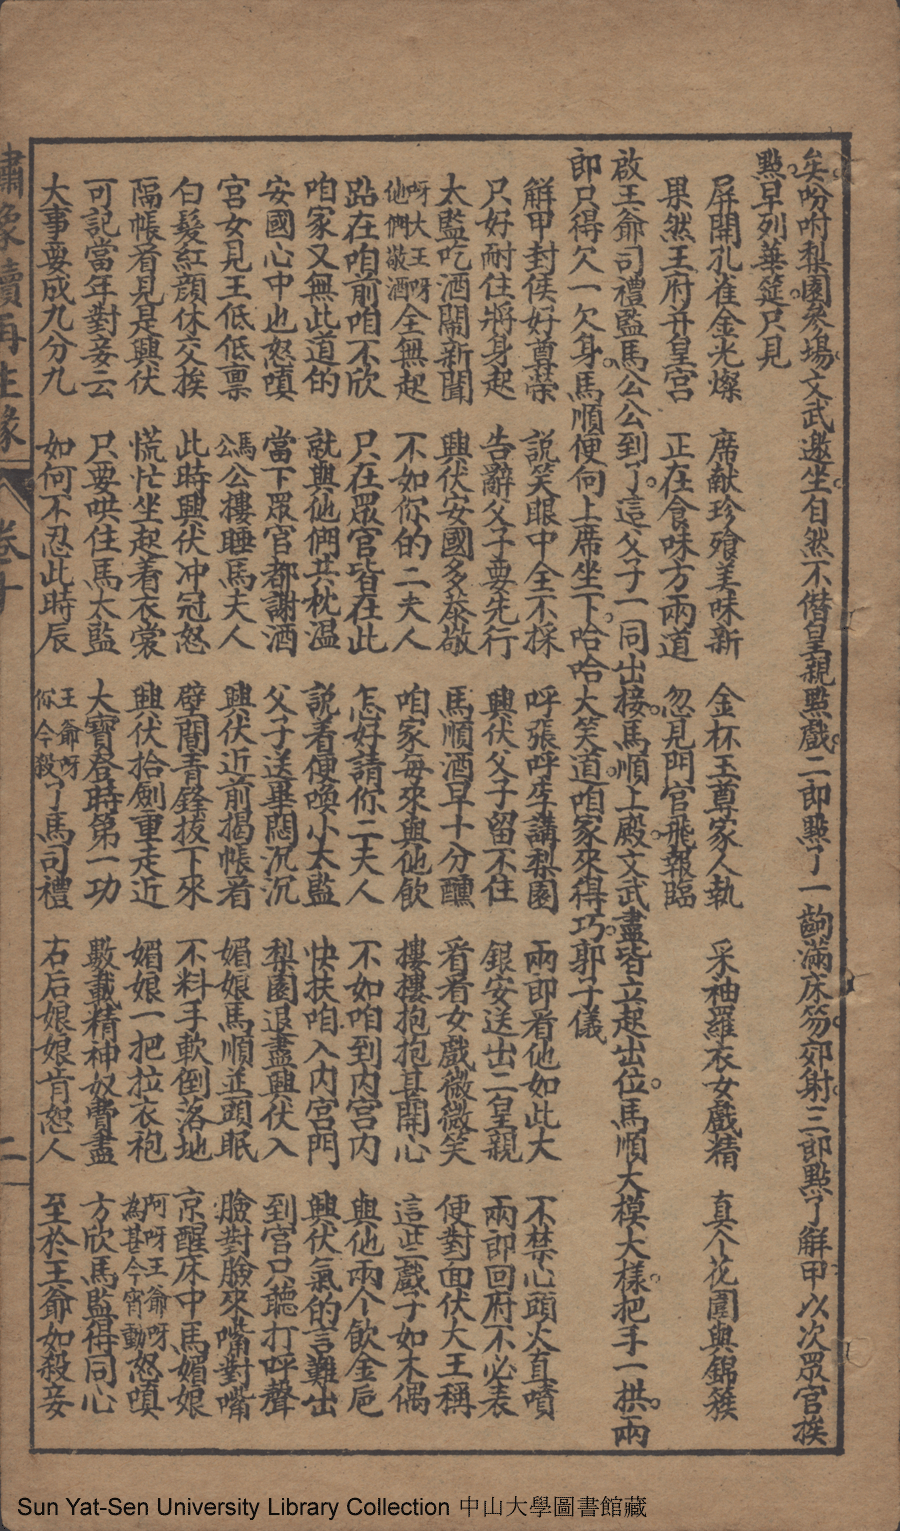 矣吩咐梨園參場文武邀坐自然不僭皇親點戲二郎點了一齣滿床笏郊射三郎點了解甲以次眾官挨
點早列華筵只見
屏開孔雀金光燦 席献珍飱美味新 金杯玉尊家人執 采袖羅衣女戲精 真个花團與錦簇
果然王府并皇宫 正在食味方兩道 忽見門官飛報臨
啟王爺司禮監馬公公到了這父子一同出接馬順上殿文武盡皆立起出位馬順大模大樣把手一拱兩
郎只得欠一欠身馬順便向上席坐下哈哈大笑道咱家來得巧郭子儀
解甲封侯好尊荣 說笑眼中全不採 呼張呼李講梨園 兩郎看他如此大 不禁心頭火直噴
只好耐住將身起 告辭父子要先行 興伏父子留不住 銀安送出二皇親 兩郎回府不必表
太監吃酒鬧新聞 興伏安國多恭敬 馬順酒早十分醺 看看女戲微微笑 便對面伏大王稱
呀大王呀他們敬酒全無起 不如你的二夫人 咱家每來與他飲 樓樓抱抱甚開心 這些戲子如木偶
跕在咱前咱不欣 只在眾官皆在此 怎好請你二夫人 不如咱到内宫内 與他兩个飲金巵
咱家又無此道的 就與他們共枕温 說着便喚小太監 快扶咱入内宫門 興伏氣的言難出
安國心中也怒嗔 當下眾官都謝酒 父子送畢悶沉沉 梨園退盡興伏入 到宫只聽打呼聲
宫女見王低低禀 馮公樓睡馬夫人 興伏近前揭帳看 媚娘馬順並頭眠 臉對臉來嘴對嘴
白髮紅顏休交挨 此時興伏冲冠怒 壁間青鋒拔下來 不料手軟倒落地 京醒床中馬媚娘
隔帳看見是興伏 慌忙坐起着衣裳 興伏拾劍重走近 媚娘一把拉衣袍 阿呀王爺呀為甚今宵動怒嗔
可記當年對妾云 只要哄住馬太監 大寶登時第一功 數載精神奴費盡 方欣馬監得同心
大事要成九分九 如何不忍此時辰 王爺呀你今殺了馬司禮 右后娘娘肯恕人 至於王爺如殺妾
繡像續再生緣 卷十 二
Sun Yat-Sen University Library Collection 中山大學圖書館藏